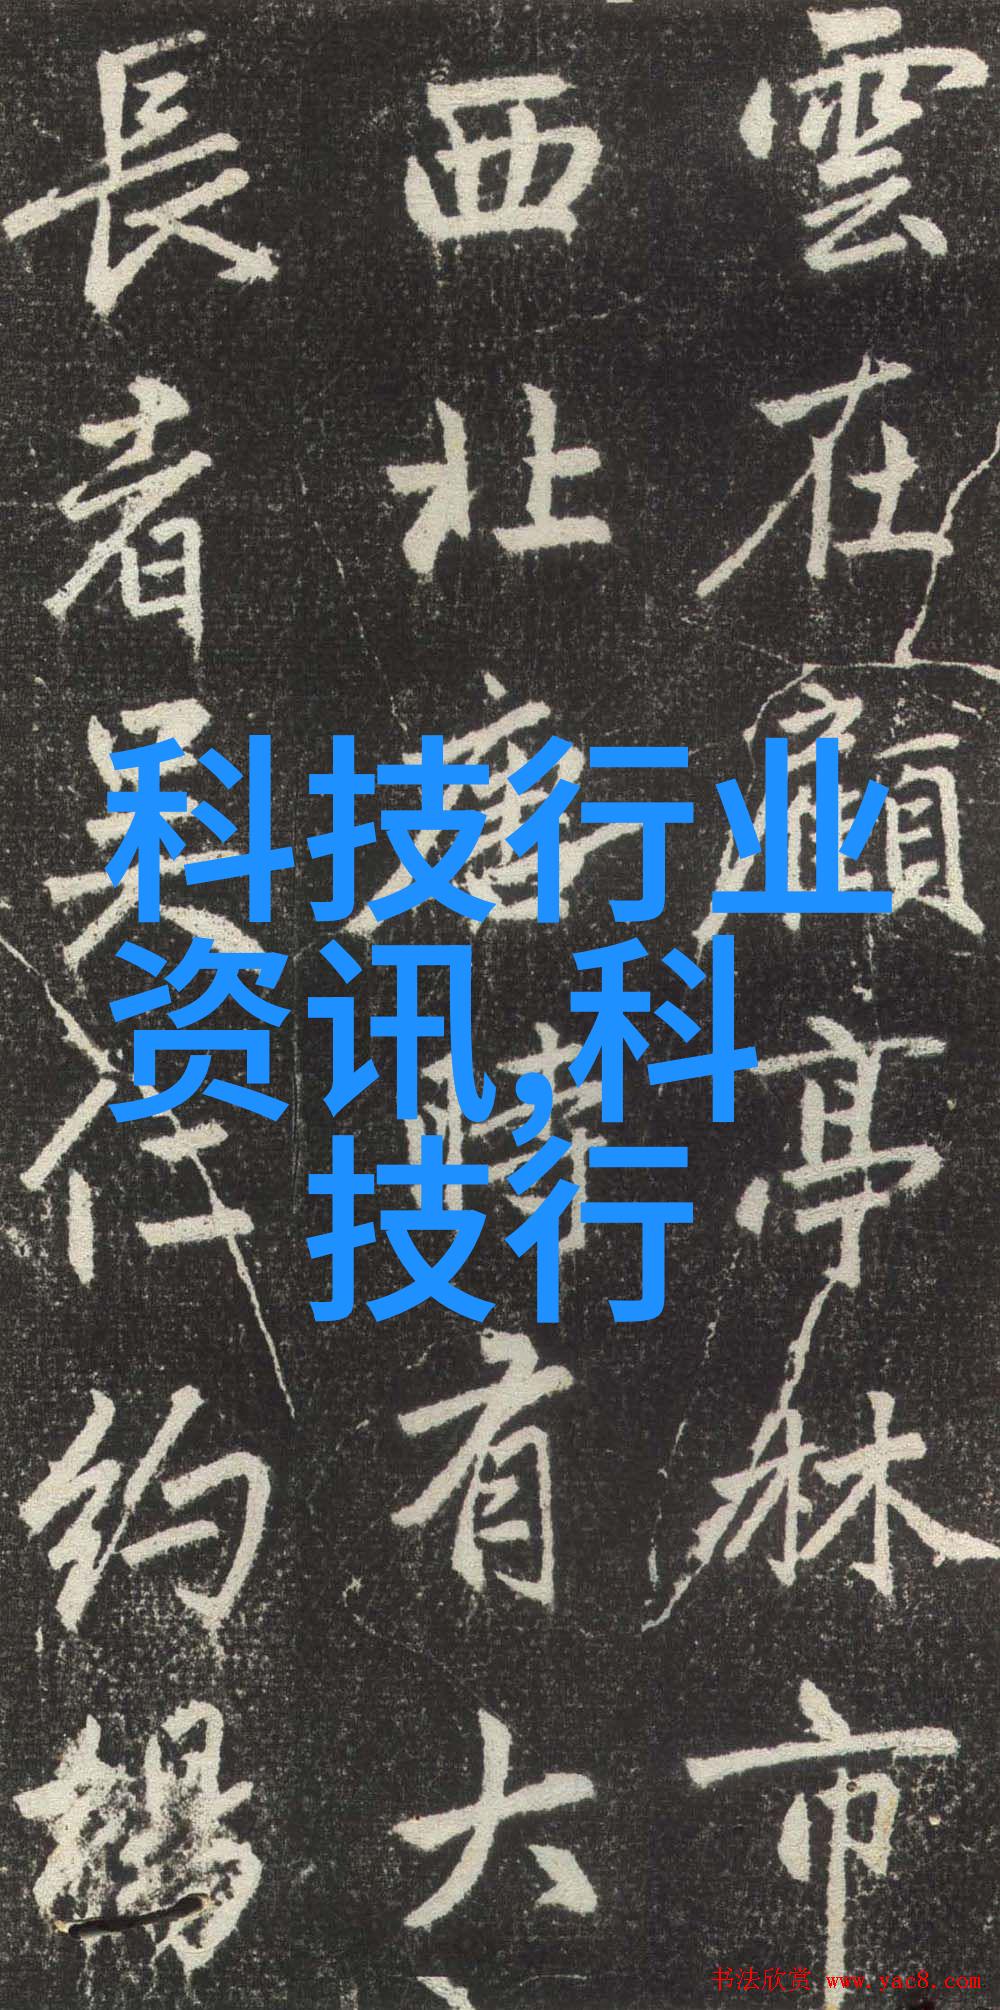 雲在顧亭林市
西北廢寺有大
長者吳仕約揚
科技行业
资讯,科
技行
书法欣赏 www.yac8.com